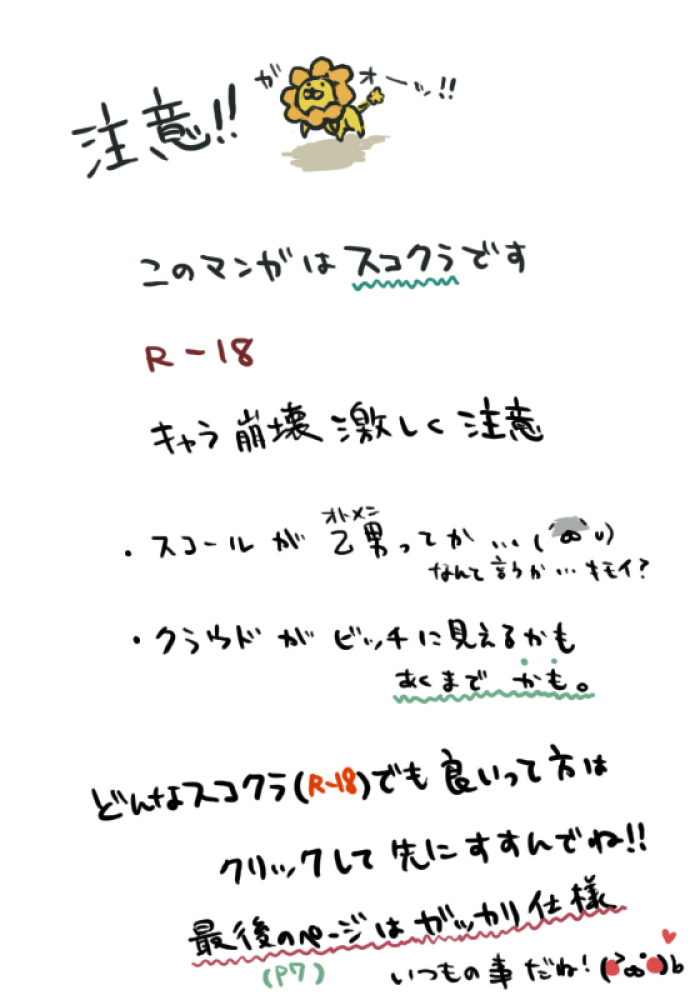 注意!!
ガオーッ!!
このマンガはスコクラです
R-18
キャラ崩壊激しく注意
・スコールが乙男ってか…(
オトメン
なんて言うか…キモイ?
・クラウドがビッチに見えるかも
あくまでかも。
どんなスコクラ(R-18)でも良いって方は
クリックして先にすすんでね!!
最後のページはガッカリ仕様
(P7)
いつもの事だね!